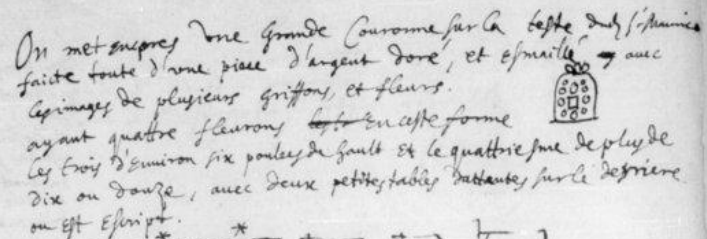 On met encores une Grande Couronne sur la teste dudt St Maurice
faicte toute d'une piece d'argent doré, et esmaillé avec
les images de plusieurs griffons, et fleurs.
ayant quattre fleurons en ceste forme
les trois d'environ six poulces de hault et le quattriesme de plus de
dix ou douze, avec deux petites tables battantes sur le derriere
ou est escript.